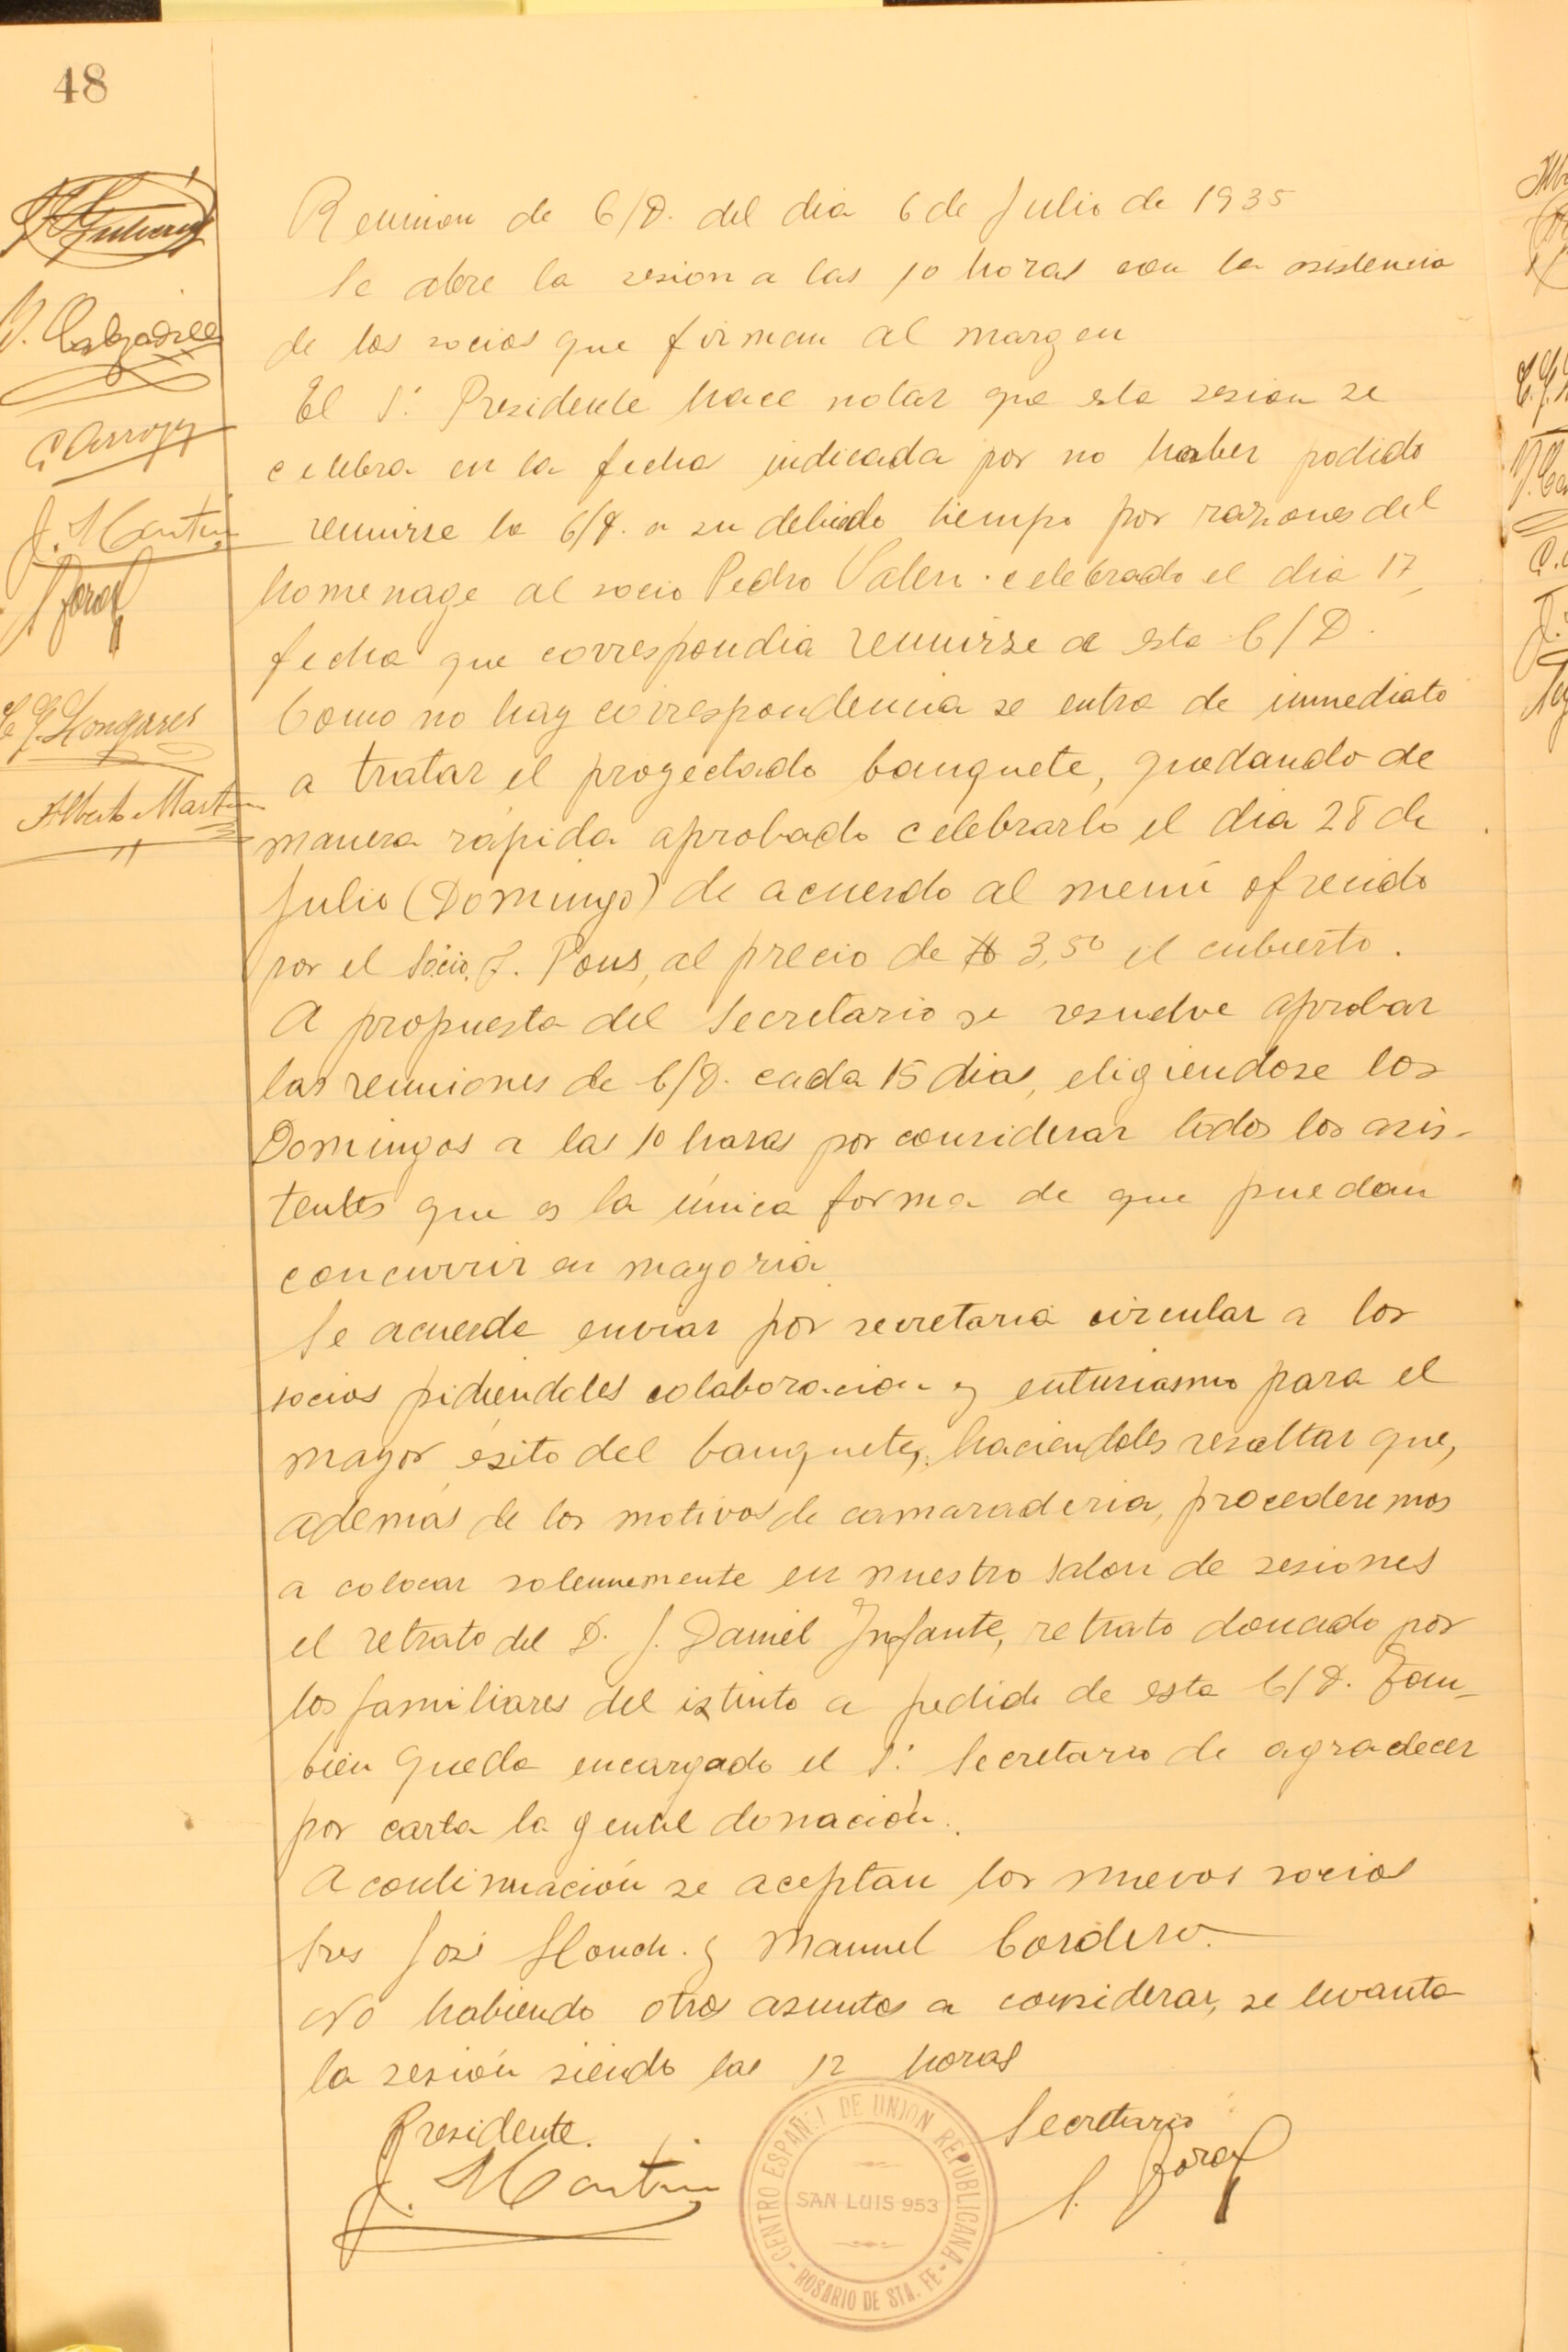 48
Reunion de C/D. del dia 6 de Julio de 1935
Se abre la sesion a las 10 horas con la asistencia
de los socios que firman al margen
El Sr. Presidente hace notar que esta sesion se
celebra en la fecha indicada por no haber podido
reunirse la C/D. a su debido tiempo por razones del
homenage al socio Pedro Valen celebrado el dia 17,
fecha que correspondia reunirse a esta C/D.
Como no hay correspondencia se entra de inmediato
a tratar el proyectado banquete, quedando de
manera rápida aprobado celebrarlo el dia 28 de
Julio (Domingo) de acuerdo al menú ofrecido
por el Socio J. Pons, al precio de $ 3,50 el cubierto.
A propuesta del Secretario se resuelve aprobar
las reuniones de C/D. cada 15 dias, eligiendose los
Domingos a las 10 horas por considerar todos los asis-
tentes que es la única forma de que puedan
concurrir en mayoria
Se acuerda enviar por secretaria circular a los
socios pidiendoles colaboracion y entusiasmo para el
mayor ésito del banquete, haciendoles resaltar que,
además de los motivos de camaraderia, procederemos
a colocar solennemente en nuestro salon de sesiones
el retrato del D. J. Daniel Infante, retrato donado por
los familiares del extinto a pedido de esta C/D. Tam-
bien queda encargado el Sr. Secretario de agradecer
por carta la gentil donación.
A continuación se aceptan los nuevos socios
Sres José y Manuel Cordero.
No habiendo otros asuntos a considerar, se levanta
la sesión siendo las 12 horas
Presidente. Secretario
J. Martin
CENTRO ESPAÑOL DE UNION REPUBLICANA
SAN LUIS 953
ROSARIO DE STA. FE
J. Calzadilla
C. Arroyo
J. Martin
Longares
Alberto Martin